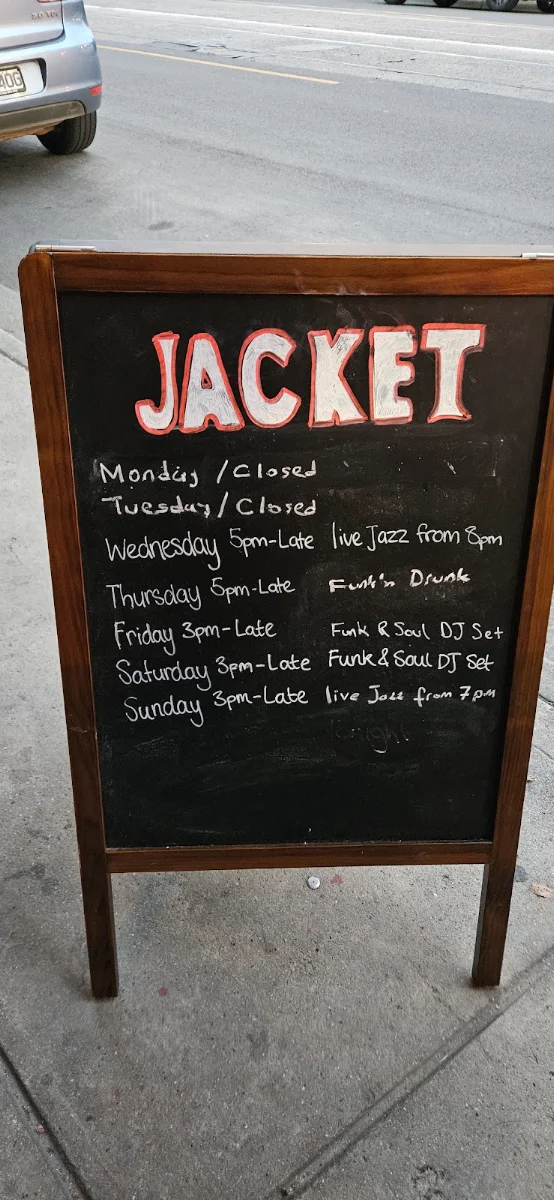 JACKET
Monday / Closed
Tuesday / Closed
Wednesday 5pm-Late live Jazz from 8pm
Thursday 5pm-Late Funk'n Drunk
Friday 3pm-Late Funk & Soul DJ Set
Saturday 3pm-Late Funk & Soul DJ Set
Sunday 3pm-Late live Jazz from 7pm
tonight